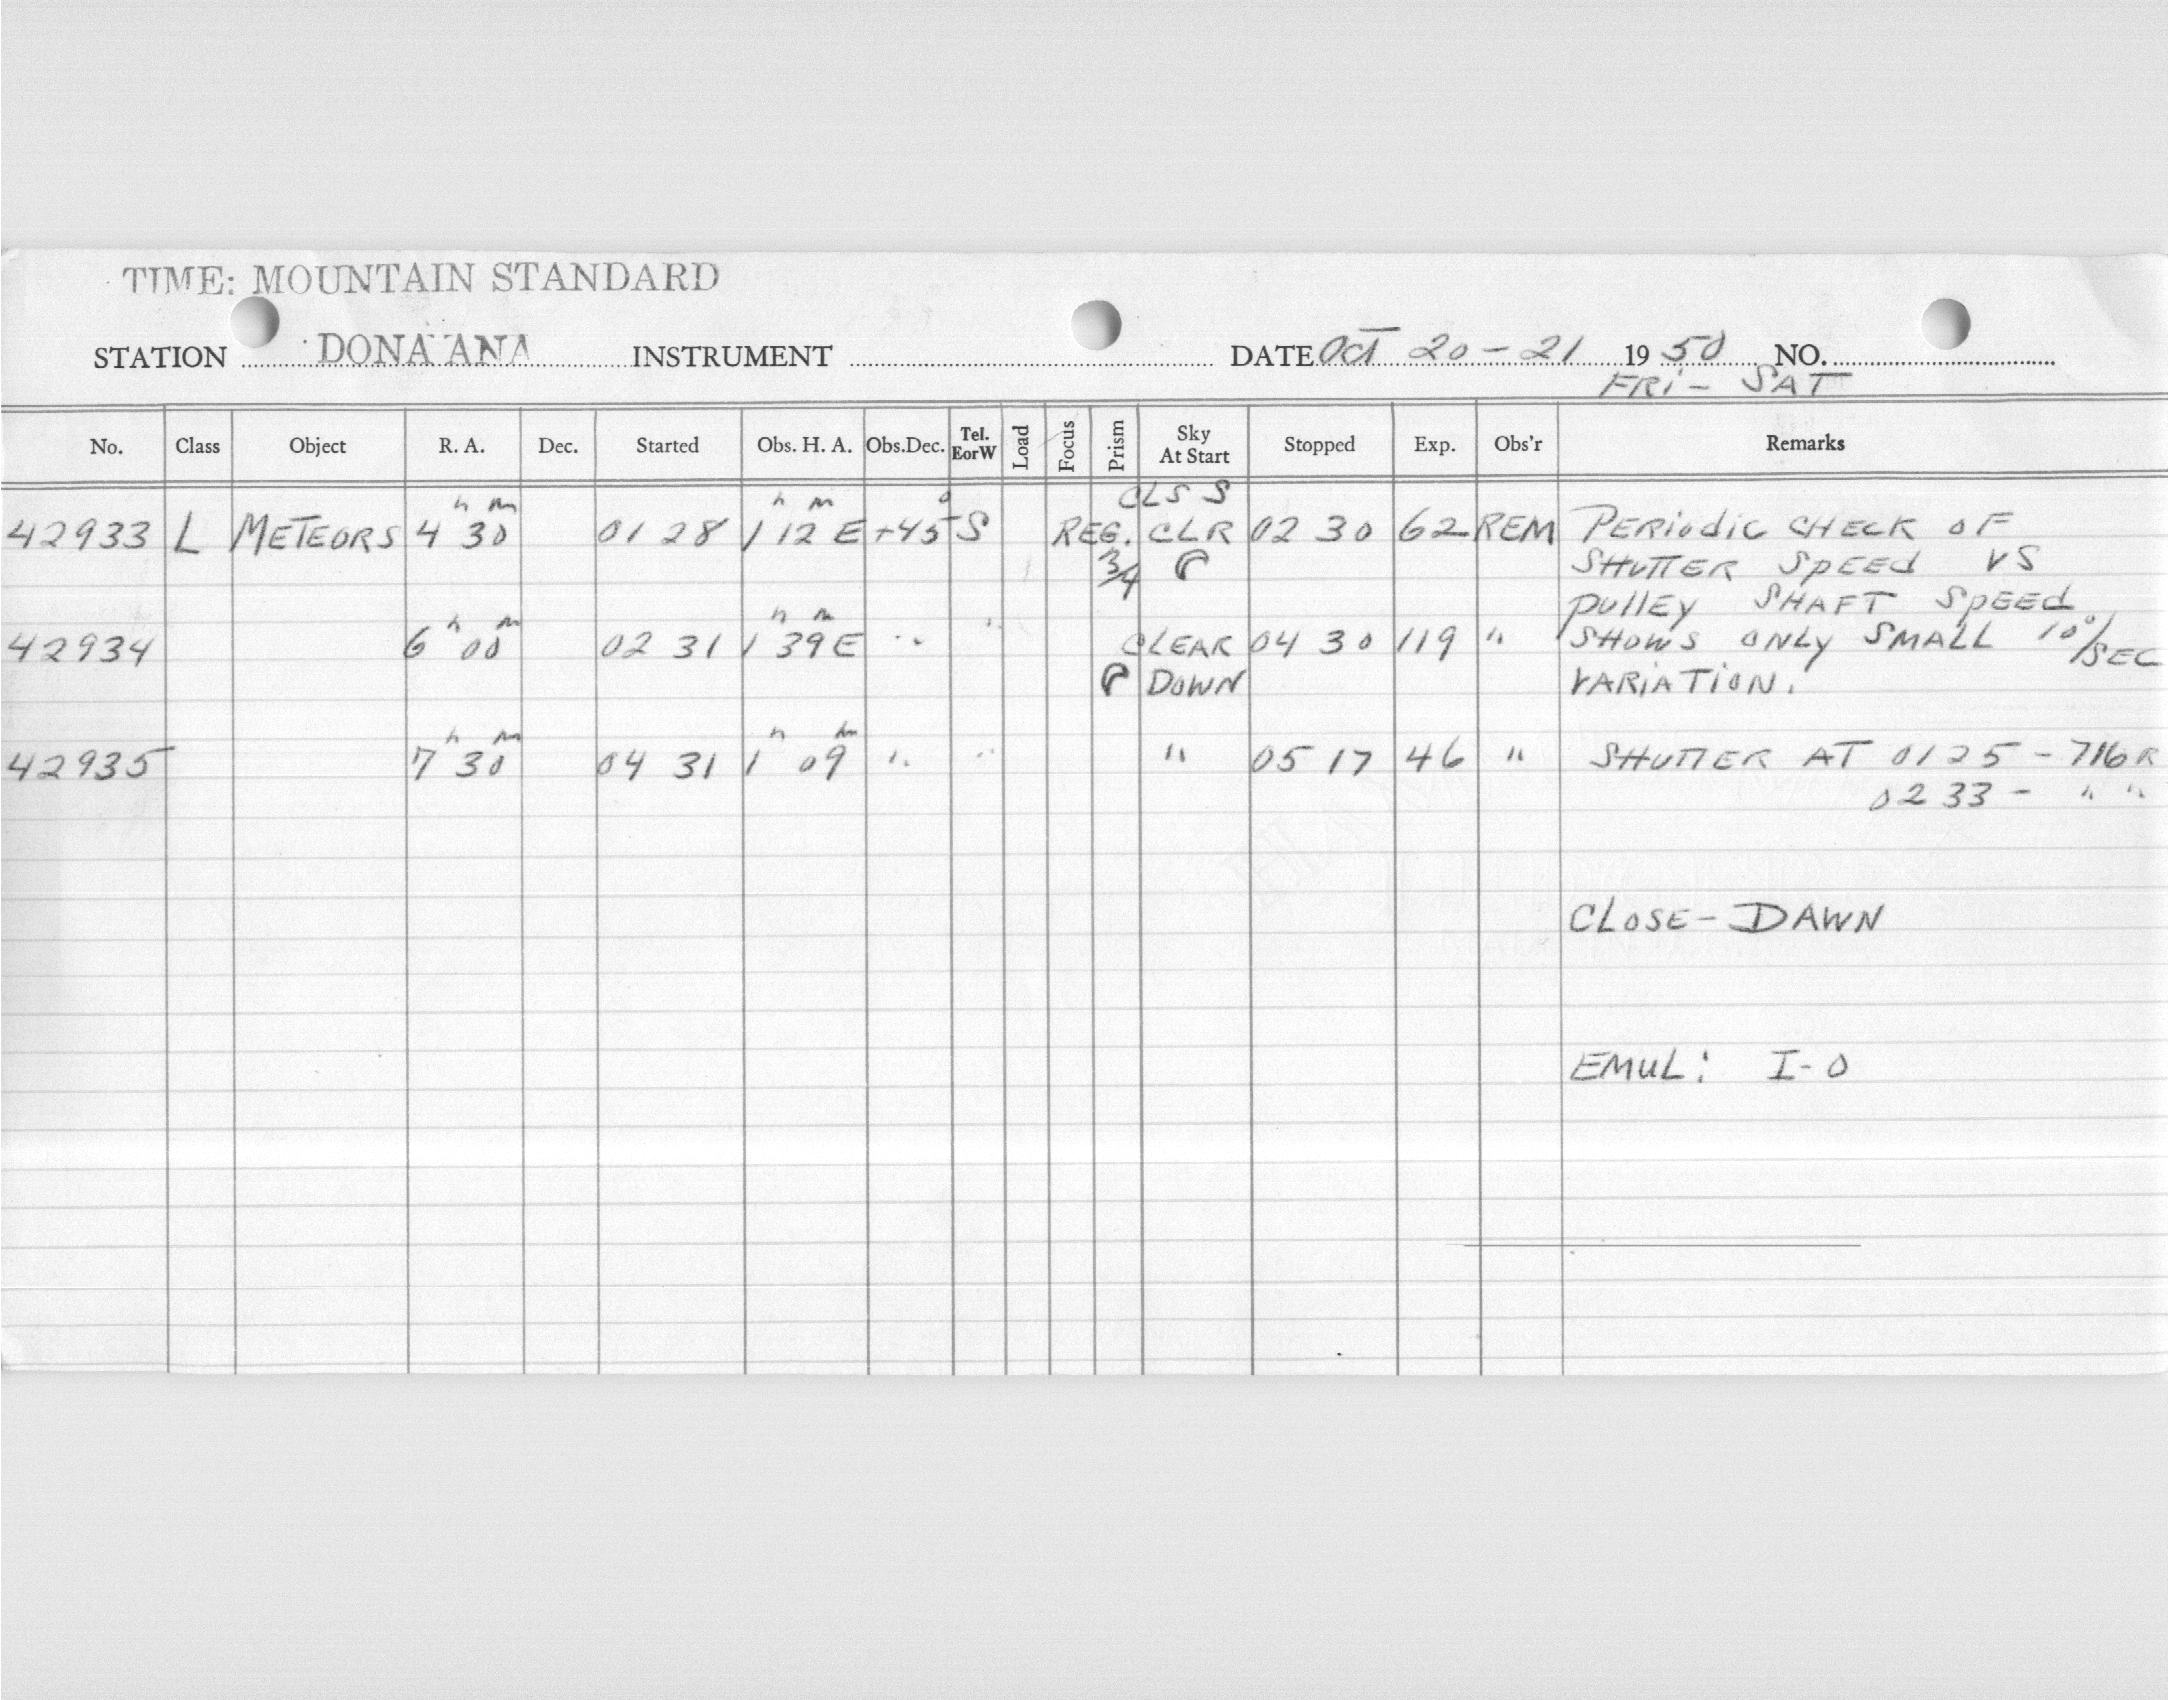 TIME: MOUNTAIN STANDARD
STATION DONA ANA INSTRUMENT DATE OCT 20-21 1950 NO.
FRI - SAT
No. Class Object R. A. Dec. Started Obs. H. A. Obs. Dec. Tel. E or W Load Focus Prism Sky At Start Stopped Exp. Obs'r Remarks
CLS S
42933 L METEORS 4h 30m 01 28 1h 12m E +45° S REG. CLR 02 30 62 REM PERIODIC CHECK OF
3/4 SHUTTER SPEED VS
PULLEY SHAFT SPEED
42934 6h 00m 02 31 1h 39m E " " CLEAR 04 30 119 " SHOWS ONLY SMALL 10°/SEC
DOWN VARIATION.
42935 7h 30m 04 31 1h 09m " " " 05 17 46 " SHUTTER AT 0125 - 716 R
0233 - " "
CLOSE - DAWN
EMUL: I-O